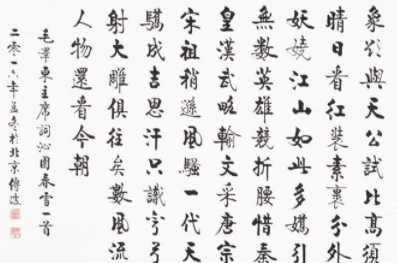 象欲與天公試比高須
晴日看紅裝素裹分外
妖嬈江山如此多嬌引
無數英雄競折腰惜秦
皇漢武略輸文采唐宗
宋祖稍遜風騷一代天
驕成吉思汗只識彎弓
射大雕俱往矣數風流
人物還看今朝
毛澤東主席詞沁園春雪一首
二零一六年孟冬於北京傅